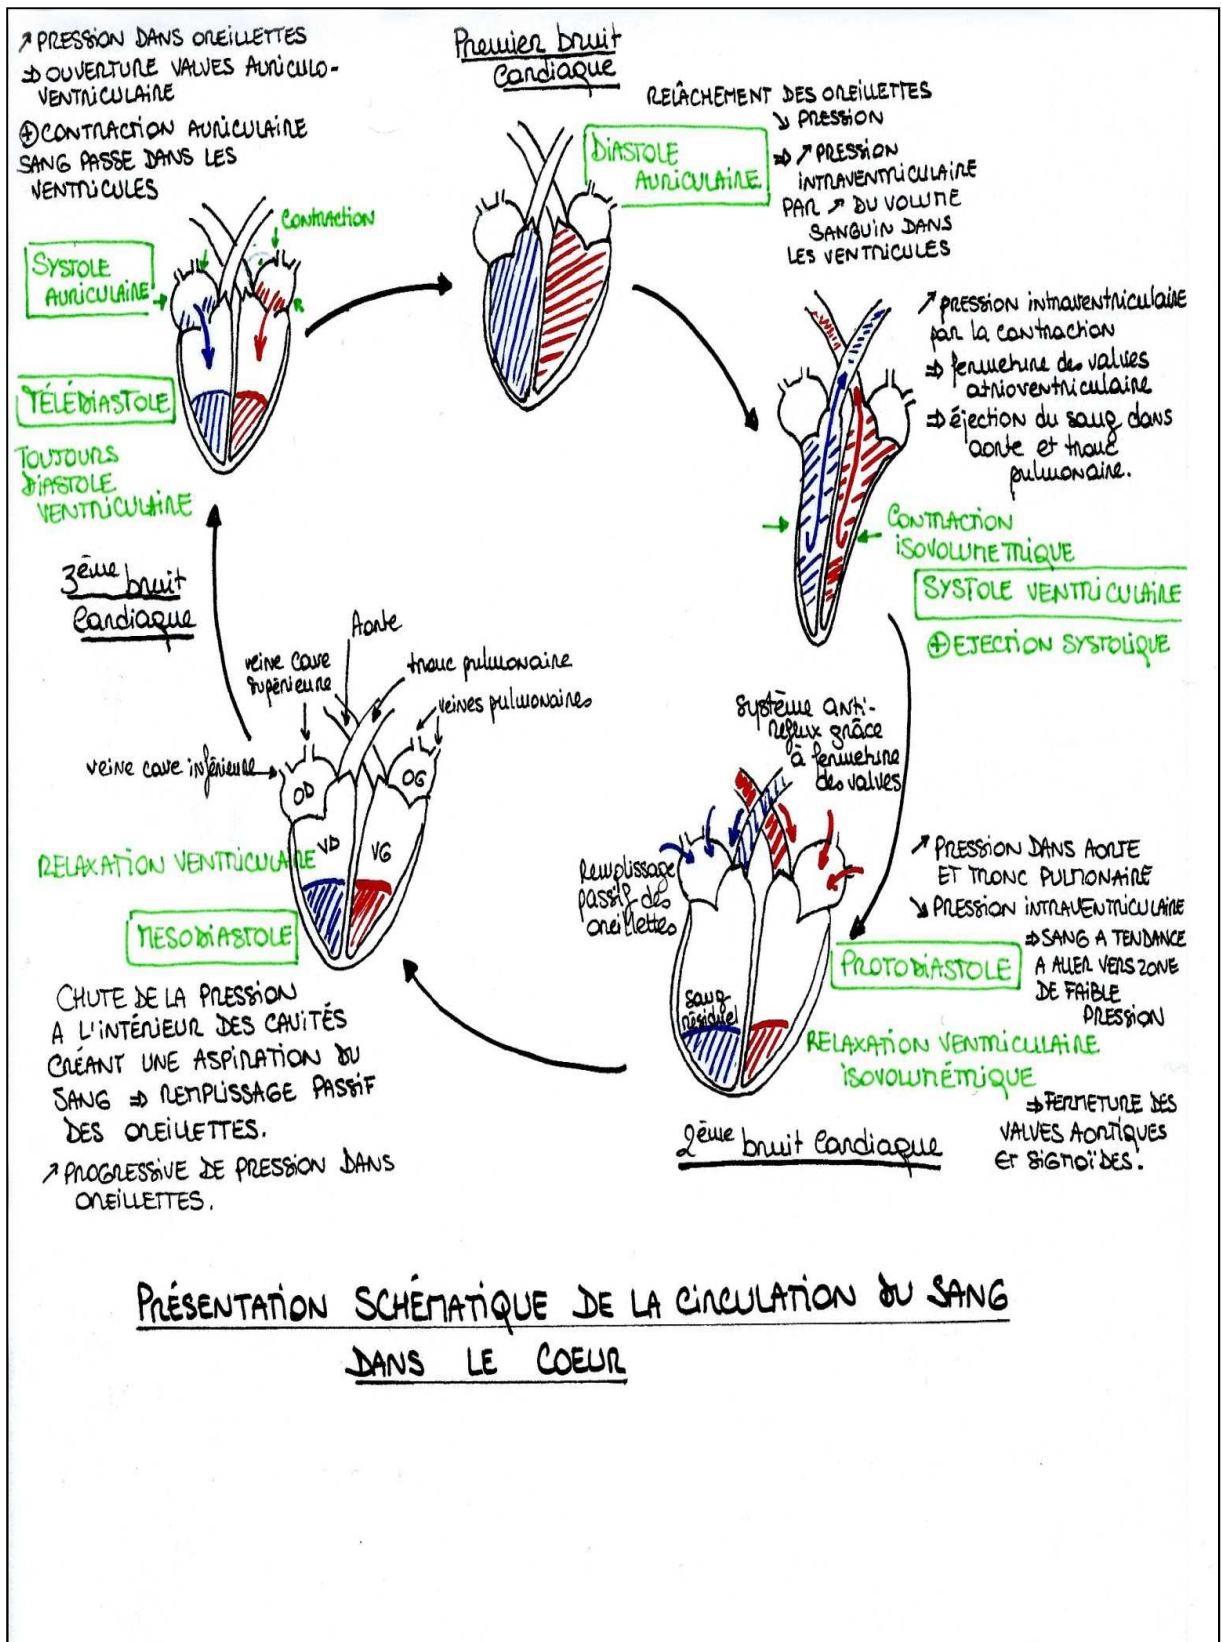 ↗ PRESSION DANS OREILLETTES
⇒ OUVERTURE VALVES AURICULO-
VENTRICULAIRE
⊕ CONTRACTION AURICULAIRE
SANG PASSE DANS LES
VENTRICULES
Premier bruit
Cardiaque
RELÂCHEMENT DES OREILLETTES
↘ PRESSION
⇒ ↗ PRESSION
INTRAVENTRICULAIRE
PAR ↗ DU VOLUME
SANGUIN DANS
LES VENTRICULES
DIASTOLE
AURICULAIRE
Contraction
SYSTOLE
AURICULAIRE
TÉLÉDIASTOLE
TOUJOURS
DIASTOLE
VENTRICULAIRE
↗ pression intraventriculaire
par la contraction
⇒ fermeture des valves
atrioventriculaire
⇒ éjection du sang dans
aorte et tronc
pulmonaire.
CONTRACTION
ISOVOLUMETRIQUE
SYSTOLE VENTRICULAIRE
⊕ EJECTION SYSTOLIQUE
3ème bruit
Cardiaque
Aorte
veine cave
supérieure
tronc pulmonaire
veines pulmonaires
veine cave inférieure
OD
OG
VD
VG
RELAXATION VENTRICULAIRE
MESODIASTOLE
CHUTE DE LA PRESSION
A L'INTÉRIEUR DES CAVITÉS
CRÉANT UNE ASPIRATION DU
SANG ⇒ REMPLISSAGE PASSIF
DES OREILLETTES.
↗ PROGRESSIVE DE PRESSION DANS
OREILLETTES.
Système anti-
reflux grâce
à fermeture
des valves
Remplissage
passif des
oreillettes
sang
résiduel
↗ PRESSION DANS AORTE
ET TRONC PULMONAIRE
↘ PRESSION INTRAVENTRICULAIRE
⇒ SANG A TENDANCE
A ALLER VERS ZONE
DE FAIBLE
PRESSION
PROTODIASTOLE
RELAXATION VENTRICULAIRE
ISOVOLUMÉMIQUE
⇒ FERMETURE DES
VALVES AORTIQUES
ET SIGMOÏDES.
2ème bruit Cardiaque
PRÉSENTATION SCHÉMATIQUE DE LA CIRCULATION DU SANG
DANS LE COEUR